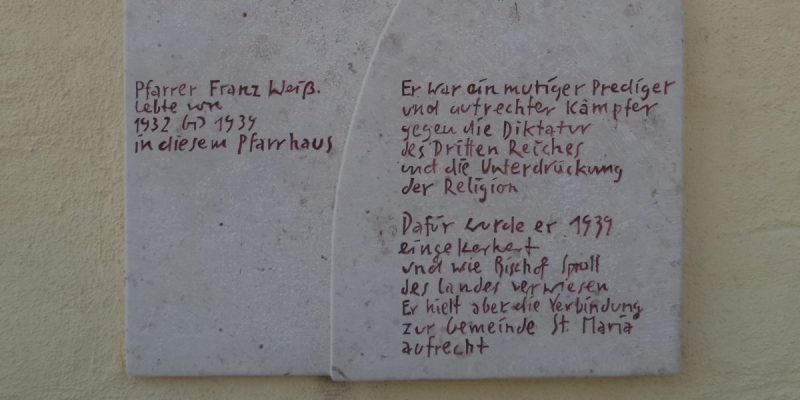 Pfarrer Franz Weiß.
lebte von
1932 bis 1939
in diesem Pfarrhaus
Er war ein mutiger Prediger
und aufrechter Kämpfer
gegen die Diktatur
des Dritten Reiches
und die Unterdrückung
der Religion
Dafür wurde er 1939
eingekerkert
und wie Bischof Sproll
des Landes verwiesen
Er hielt aber die Verbindung
zur Gemeinde St. Maria
aufrecht